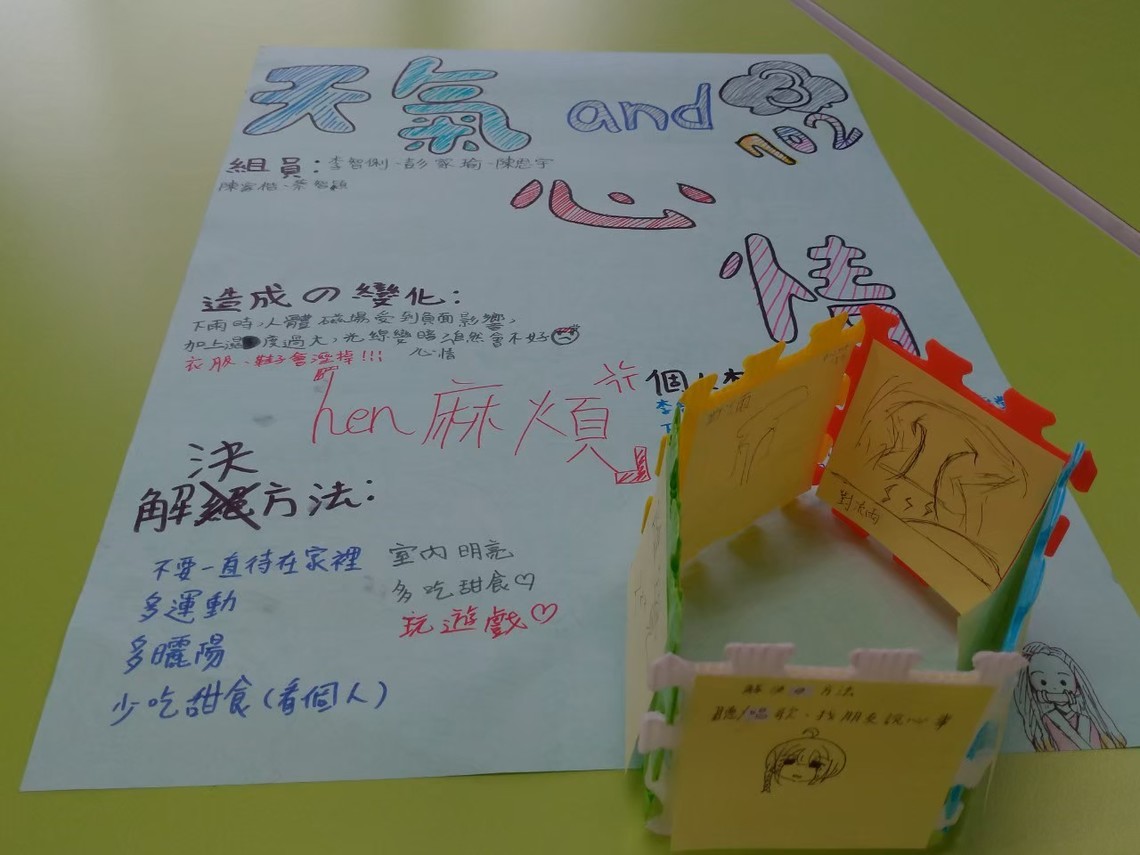 天氣 and
702
心
情
組員：李智俐、彭家瑜、陳思宇
造成の變化：
下雨時，人體磁場受到負面影響，
加上濕度過大，光線變暗，自然會不好
心情
衣服、鞋子會溼掉!!!
hen麻煩
個人
解決方法：
不要一直待在家裡
多運動
多曬陽
少吃甜食(看個人)
室內明亮
多吃甜食♡
玩遊戲♡
對流雨
解決の方法
聽/唱歌、找朋友談心事